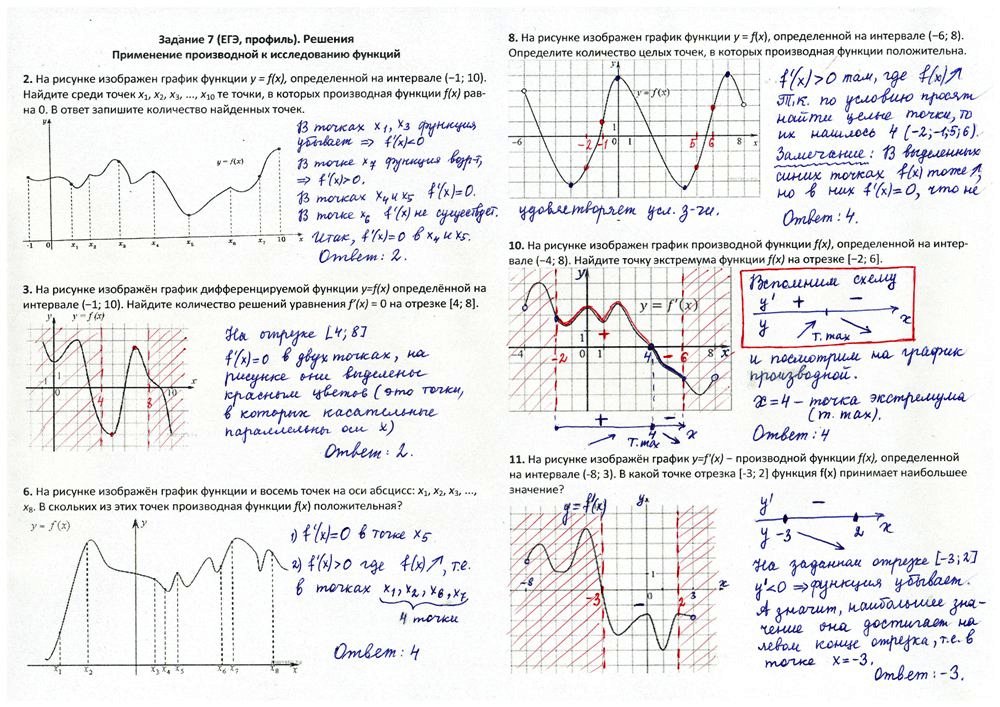 Задание 7 (ЕГЭ, профиль). Решения
Применение производной к исследованию функций
2. На рисунке изображен график функции y = f(x), определенной на интервале (−1; 10).
Найдите среди точек x₁, x₂, x₃, ..., x₁₀ те точки, в которых производная функции f(x) рав-
на 0. В ответ запишите количество найденных точек.
y
y = f(x)
-1 0 x₁ x₂ x₃ x₄ x₅ x₆ x₇ 10 x
В точках x₁, x₃ функция
убывает ⇒ f'(x)<0
В точке x₇ функция возр-т,
⇒ f'(x)>0.
В точках x₄ и x₅ f'(x)=0.
В точке x₆ f'(x) не существует.
Итак, f'(x)=0 в x₄ и x₅.
Ответ: 2.
3. На рисунке изображён график дифференцируемой функции y=f(x) определённой на
интервале (−1; 10). Найдите количество решений уравнения f'(x) = 0 на отрезке [4; 8].
y
y = f(x)
-1 0 1 4 8 10 x
На отрезке [4; 8]
f'(x)=0 в двух точках, на
рисунке они выделены
красным цветов (это точки,
в которых касательные
параллельны оси x)
Ответ: 2.
6. На рисунке изображён график функции и восемь точек на оси абсцисс: x₁, x₂, x₃, ...,
x₈. В скольких из этих точек производная функции f(x) положительная?
y = f(x)
y
x₁ x₂ x₃ x₄ x₅ x₆ x₇ x₈ x
1) f'(x)=0 в точке x₅
2) f'(x)>0 где f(x)↗, т.е.
в точках x₁, x₂, x₆, x₇
4 точки
Ответ: 4
8. На рисунке изображен график функции y = f(x), определенной на интервале (−6; 8).
Определите количество целых точек, в которых производная функции положительна.
y
y = f(x)
-6 -2 -1 0 1 5 6 8 x
f'(x)>0 там, где f(x)↗
Т.к. по условию просят
найти целые точки, то
их нашлось 4 (-2; -1; 5; 6).
Замечание: В выделенных
синих точках f(x) тоже ↗,
но в них f'(x)=0, что не
удовлетворяет усл. з-чи.
Ответ: 4.
10. На рисунке изображен график производной функции f(x), определенной на интер-
вале (−4; 8). Найдите точку экстремума функции f(x) на отрезке [−2; 6].
y
y = f'(x)
+ −
-4 -2 0 1 4 6 8 x
+ −
4 x
т. max
Вспомним схему
y' + −
y x
т. max
и посмотрим на график
производной.
x=4 – точка экстремума
(т. max).
Ответ: 4
11. На рисунке изображён график y=f'(x) – производной функции f(x), определенной
на интервале (-8; 3). В какой точке отрезка [-3; 2] функция f(x) принимает наибольшее
значение?
y = f'(x)
y
-8 -3 − 0 1 2 3 x
y' −
y -3 2 x
На заданном отрезке [-3; 2]
y'<0 ⇒ функция убывает.
А значит, наибольшее зна-
чение она достигает на
левом конце отрезка, т.е. в
точке x=-3.
Ответ: -3.